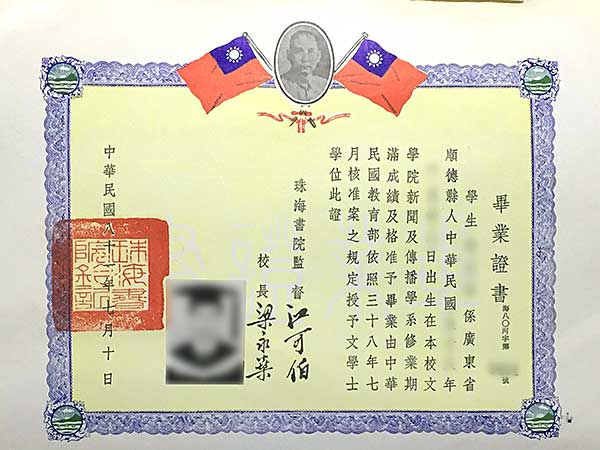 畢業證書
海八〇河字第 號
學生 係廣東省
順德縣人中華民國 年
日出生在本校文
學院新聞及傳播學系修業期
滿成績及格准予畢業由中華
民國教育部依照三十八年七
月核准案之規定授予文學士
學位此證
珠海書院監督 江可伯
校長 梁永燊
中華民國八十年七月十日